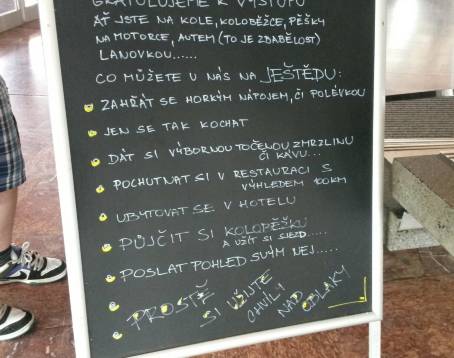 GRATULUJEME K VÝSTUPU
AŤ JSTE NA KOLE, KOLOBĚŽCE, PĚŠKY
NA MOTORCE, AUTEM (TO JE ZBABĚLOST)
LANOVKOU......
CO MŮŽETE U NÁS NA JEŠTĚDU:
ZAHŘÁT SE HORKÝM NÁPOJEM, ČI POLÉVKOU
JEN SE TAK KOCHAT
DÁT SI VÝBORNOU TOČENOU ZMRZLINU
ČI KÁVU...
POCHUTNAT SI V RESTAURACI S
VÝHLEDEM 100KM
UBYTOVAT SE V HOTELU
PŮJČIT SI KOLOPĚŠKU
A UŽÍT SI SJEZD.....
POSLAT POHLED SVÝM NEJ.....
PROSTĚ SI UŽIJTE CHVÍLI NAD OBLAKY